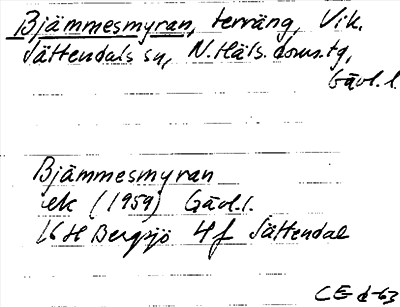 Bjämmesmyran, terräng, Vik.
Jättendals sn, N. Häls. doms.tg,
Gävl. l.
Bjämmesmyran
ek (1959) Gävl. l.
16H Bergsjö 4f Jättendal
CE d-63